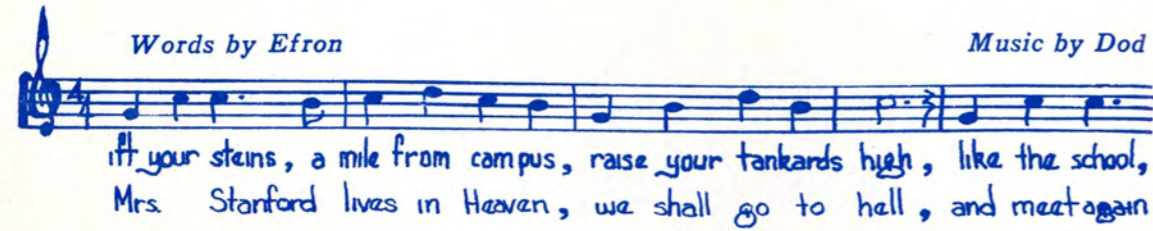 Words by Efron Music by Dod
4/4
ift your steins, a mile from campus, raise your tankards high, like the school,
Mrs. Stanford lives in Heaven, we shall go to hell, and meet again